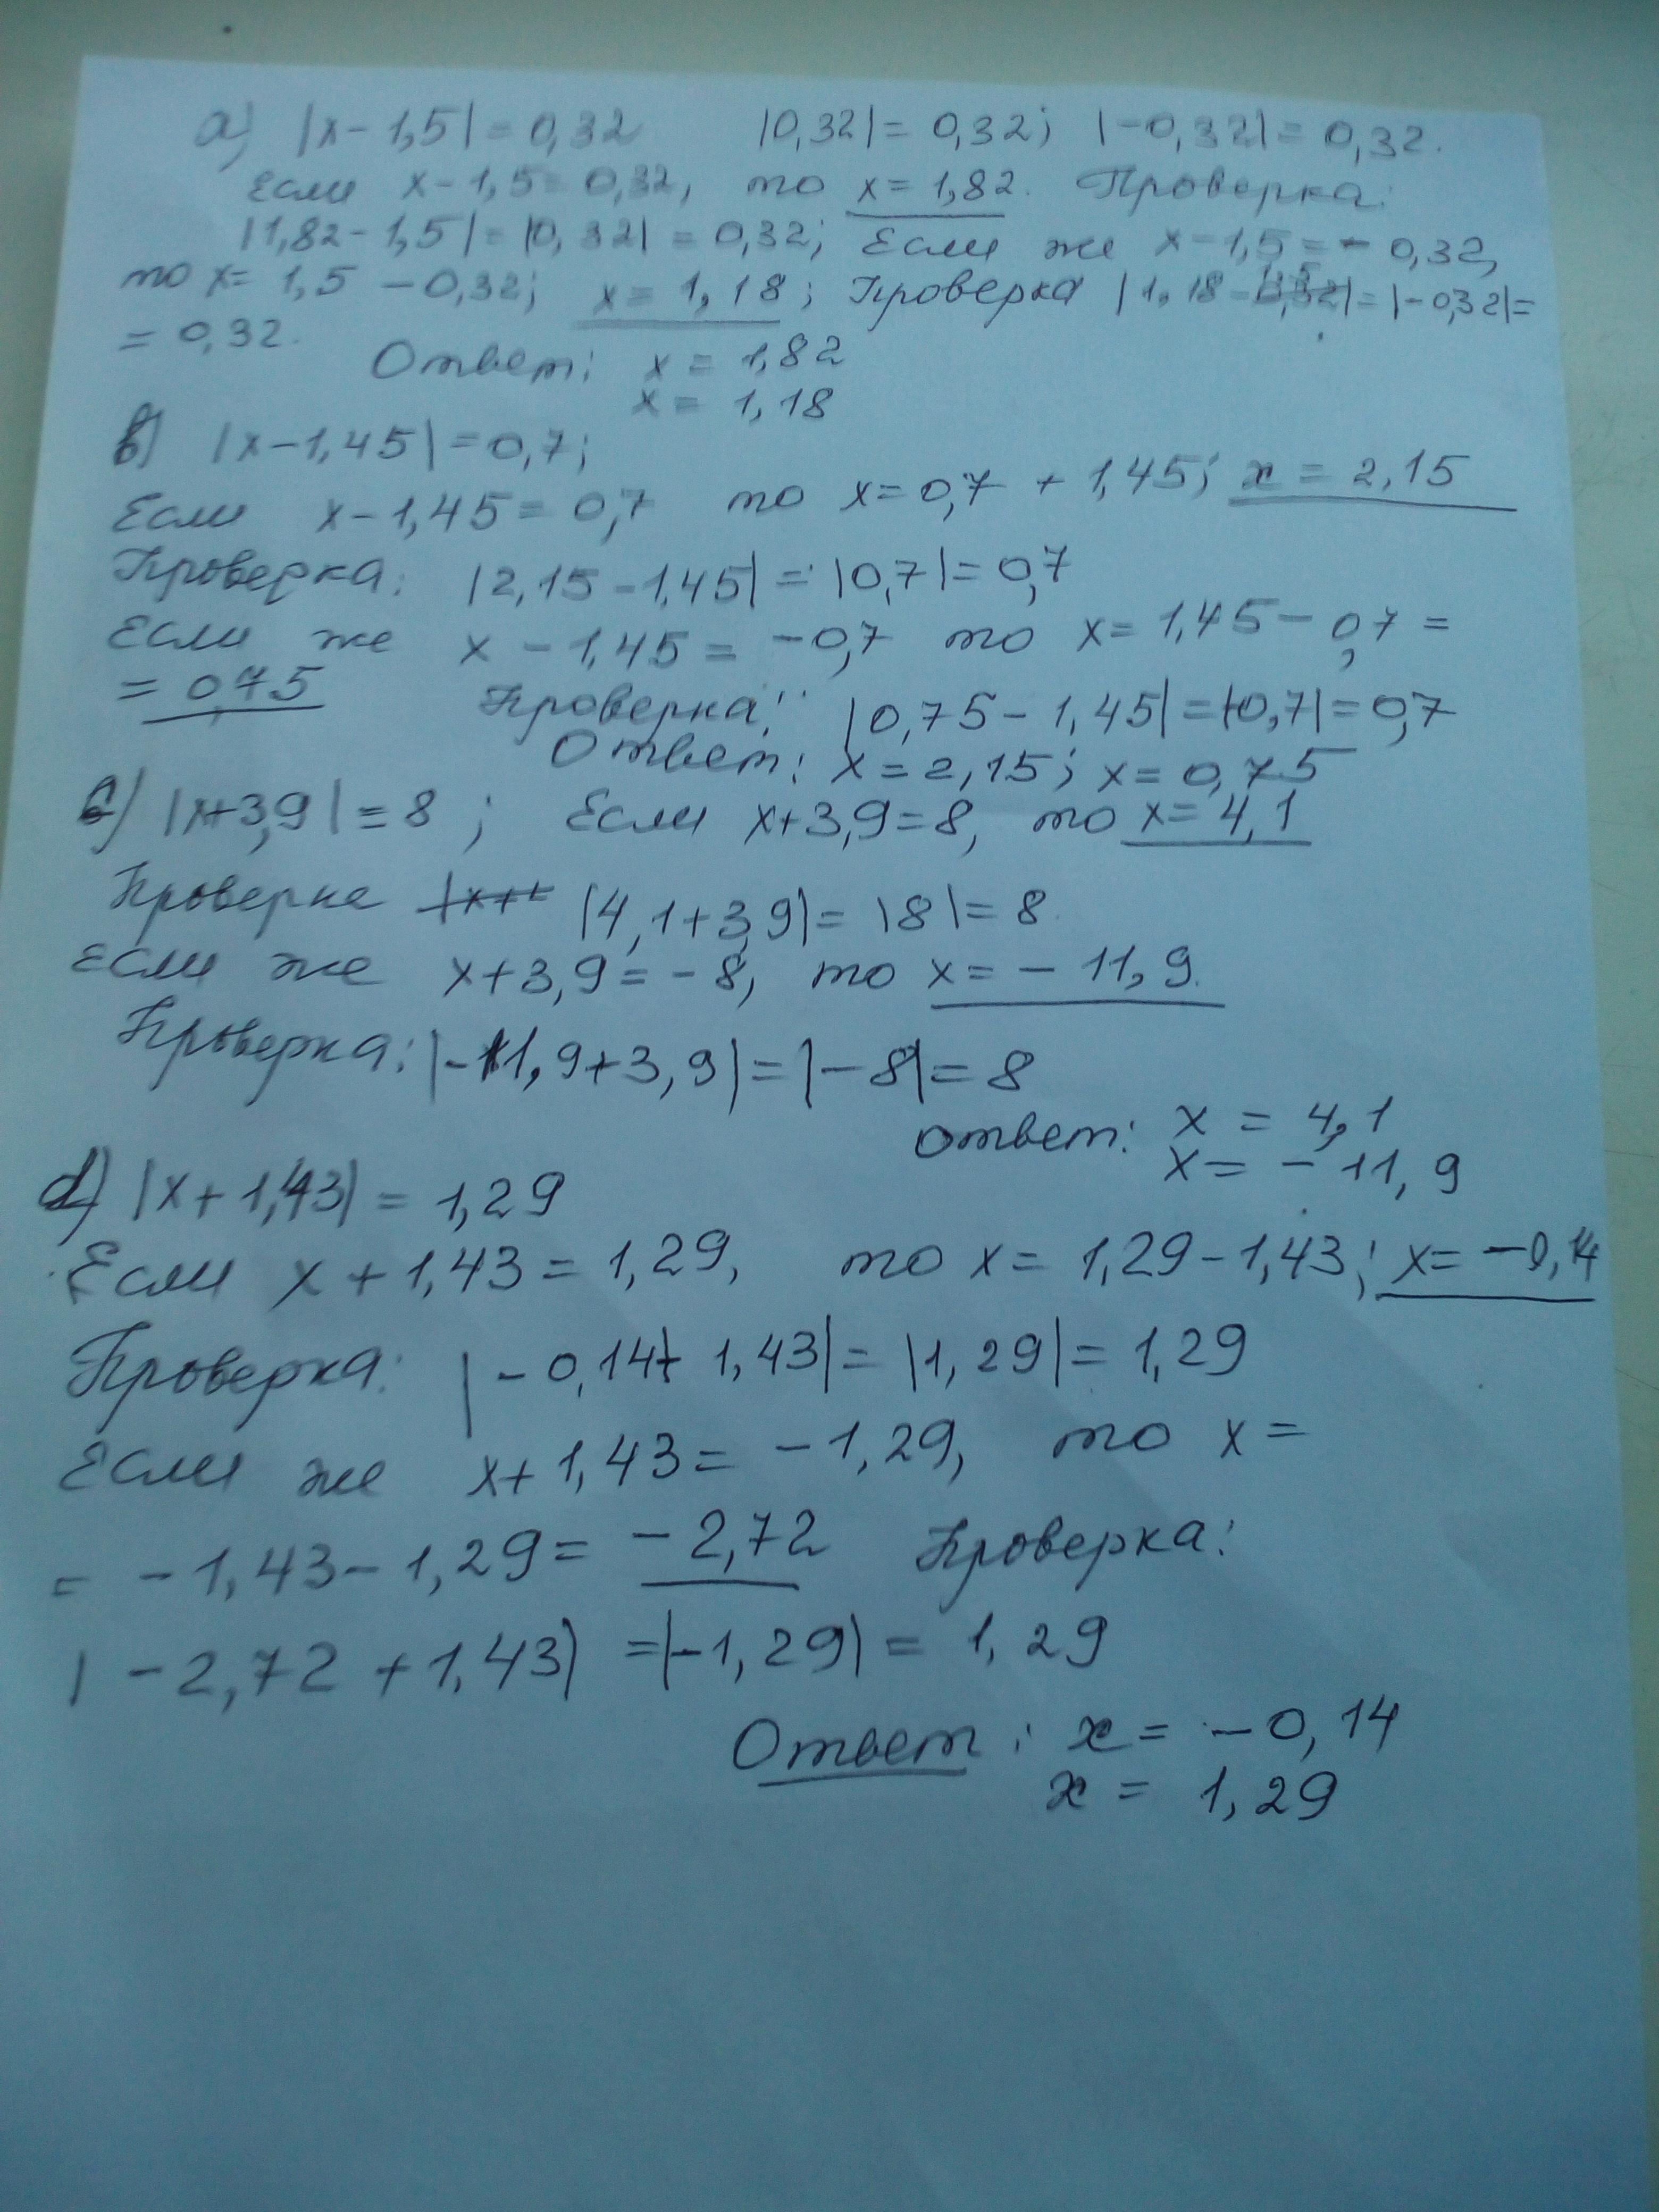 а) |x-1,5|=0,32 |0,32|=0,32; |-0,32|=0,32.
Если x-1,5=0,32, то x=1,82. Проверка:
|1,82-1,5|=|0,32|=0,32; Если же x-1,5=-0,32,
то x=1,5-0,32; x=1,18; Проверка |1,18-1,5|=|-0,32|=
=0,32.
Ответ: x=1,82
x=1,18
b) |x-1,45|=0,7;
Если x-1,45=0,7 то x=0,7+1,45; x=2,15
Проверка: |2,15-1,45|=|0,7|=0,7
Если же x-1,45=-0,7 то x=1,45-0,7=
=0,75 Проверка: |0,75-1,45|=|-0,7|=0,7
Ответ: x=2,15; x=0,75
c) |x+3,9|=8; Если x+3,9=8, то x=4,1
Проверке |4,1+3,9|=|8|=8
Если же x+3,9=-8, то x=-11,9.
Проверка: |-11,9+3,9|=|-8|=8
ответ: x=4,1
x=-11,9
d) |x+1,43|=1,29
Если x+1,43=1,29, то x=1,29-1,43; x=-0,14
Проверка: |-0,14+1,43|=|1,29|=1,29
Если же x+1,43=-1,29, то x=
=-1,43-1,29=-2,72 Проверка:
|-2,72+1,43|=|-1,29|=1,29
Ответ: x=-0,14
x=1,29